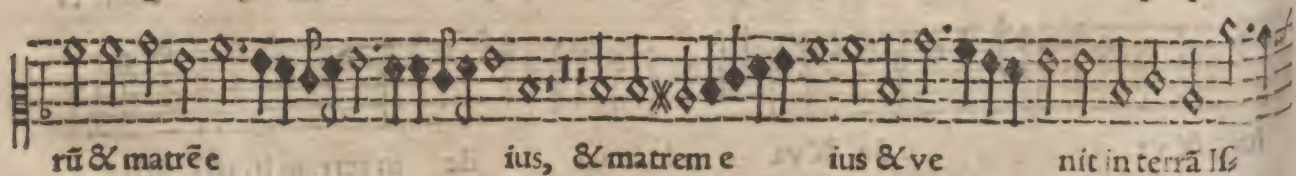 rū & matrē e ius, & matrem e ius & ve nit in terrā Iſ-